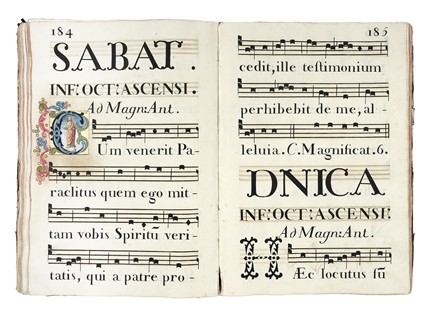 184
SABAT.
INF: OCT: ASCENSI.
Ad Magn: Ant.
CUm venerit Pa-
raclitus quem ego mit-
tam vobis Spiritũ veri-
tatis, qui a patre pro-
185
cedit, ille testimonium
perhibebit de me, al-
leluia. C. Magnificat. 6.
DNICA
INF: OCT: ASCENSI:
Ad Magn: Ant.
HÆc locutus sũ